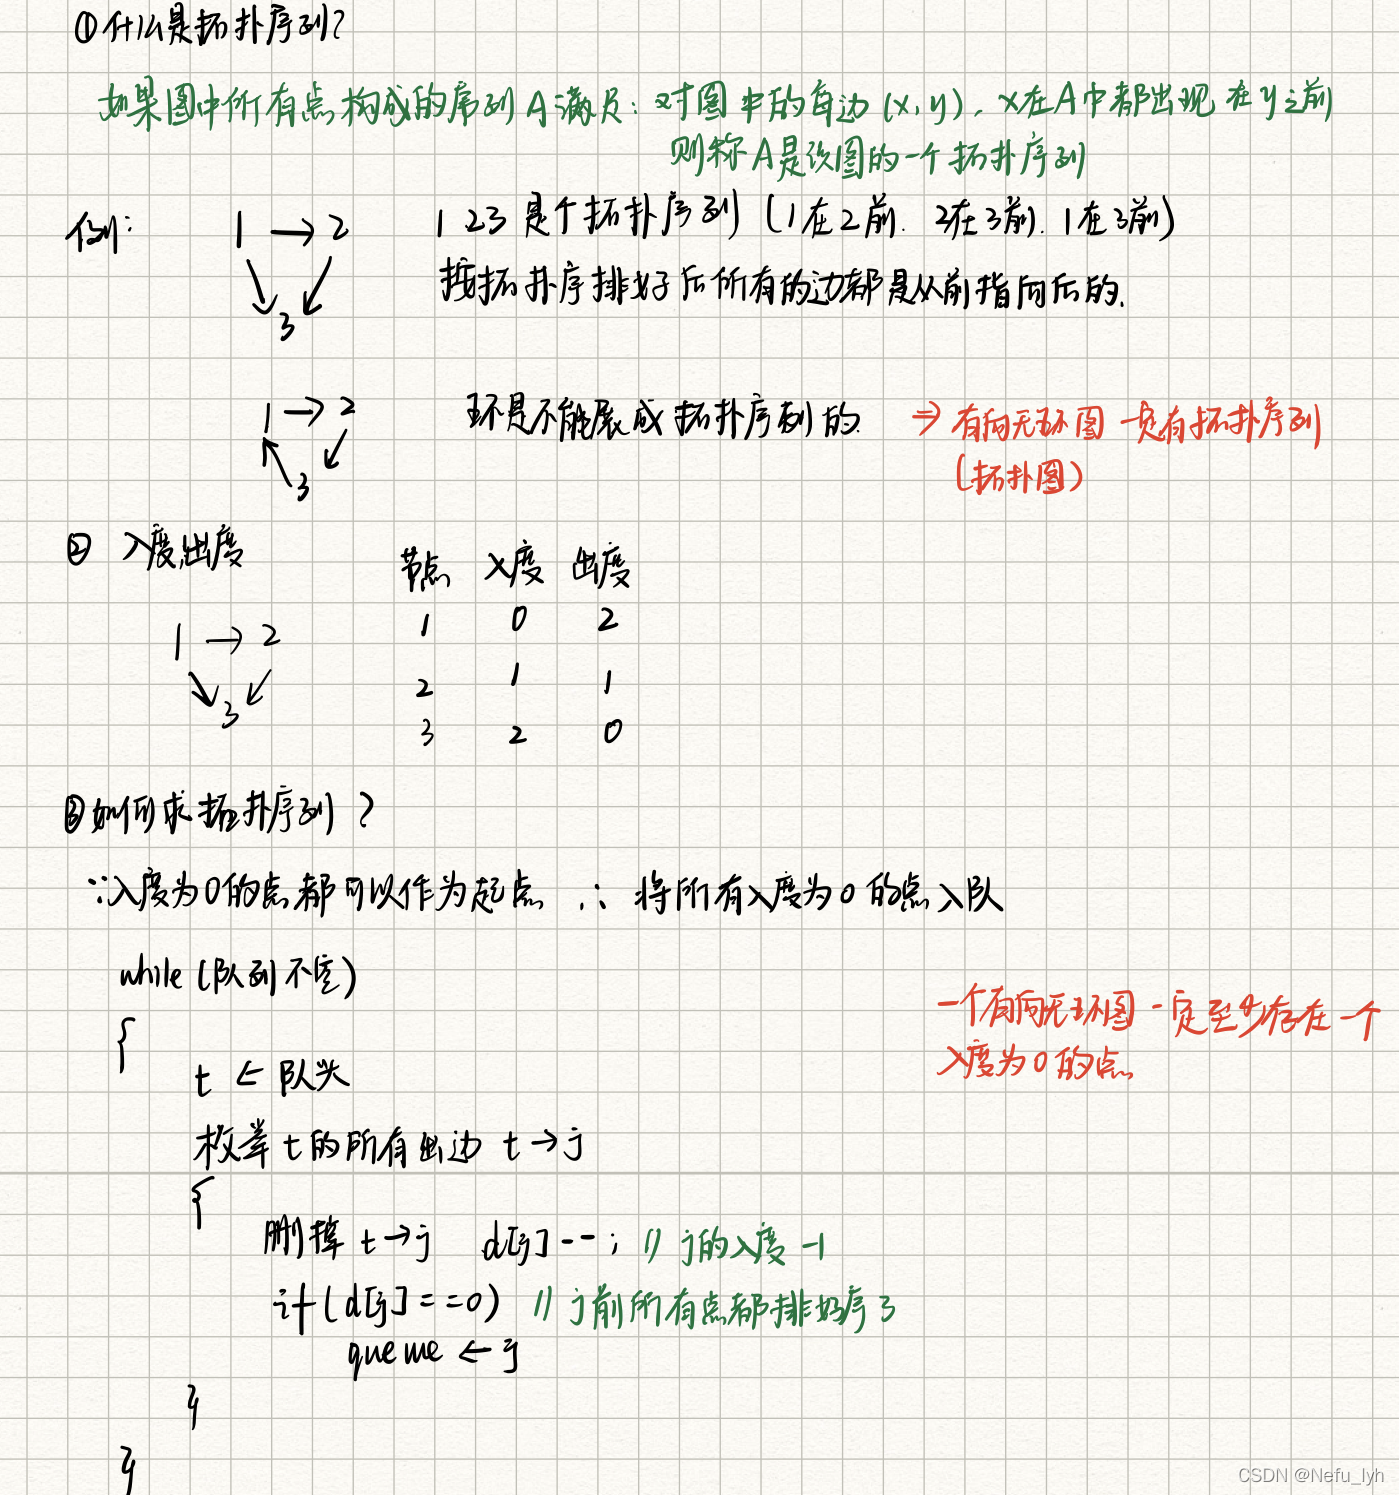 ①什么是拓扑序列?
如果图中所有点构成的序列A满足:对图中的每边(x,y),x在A中都出现在y之前
则称A是该图的一个拓扑序列
例:
1→2
3
1 2 3 是个拓扑序列(1在2前. 2在3前. 1在3前)
按拓扑序排好后所有的边都是从前指向后的.
1→2
3
环是不能展成拓扑序列的. ⇒ 有向无环图一定有拓扑序列
(拓扑图)
② 入度,出度
节点 入度 出度
1→2
3
1 0 2
2 1 1
3 2 0
③如何求拓扑序列?
∵入度为0的点都可以作为起点 ∴ 将所有入度为0的点入队
while(队列不空)
{
一个有向无环图一定至少存在一个
入度为0的点
t ← 队头
枚举t的所有出边 t→j
{
删掉 t→j d[j]--; // j的入度-1
if(d[j]==0) // j前所有点都排好序了
queue ← j
}
}
CSDN @Nefu_lyh